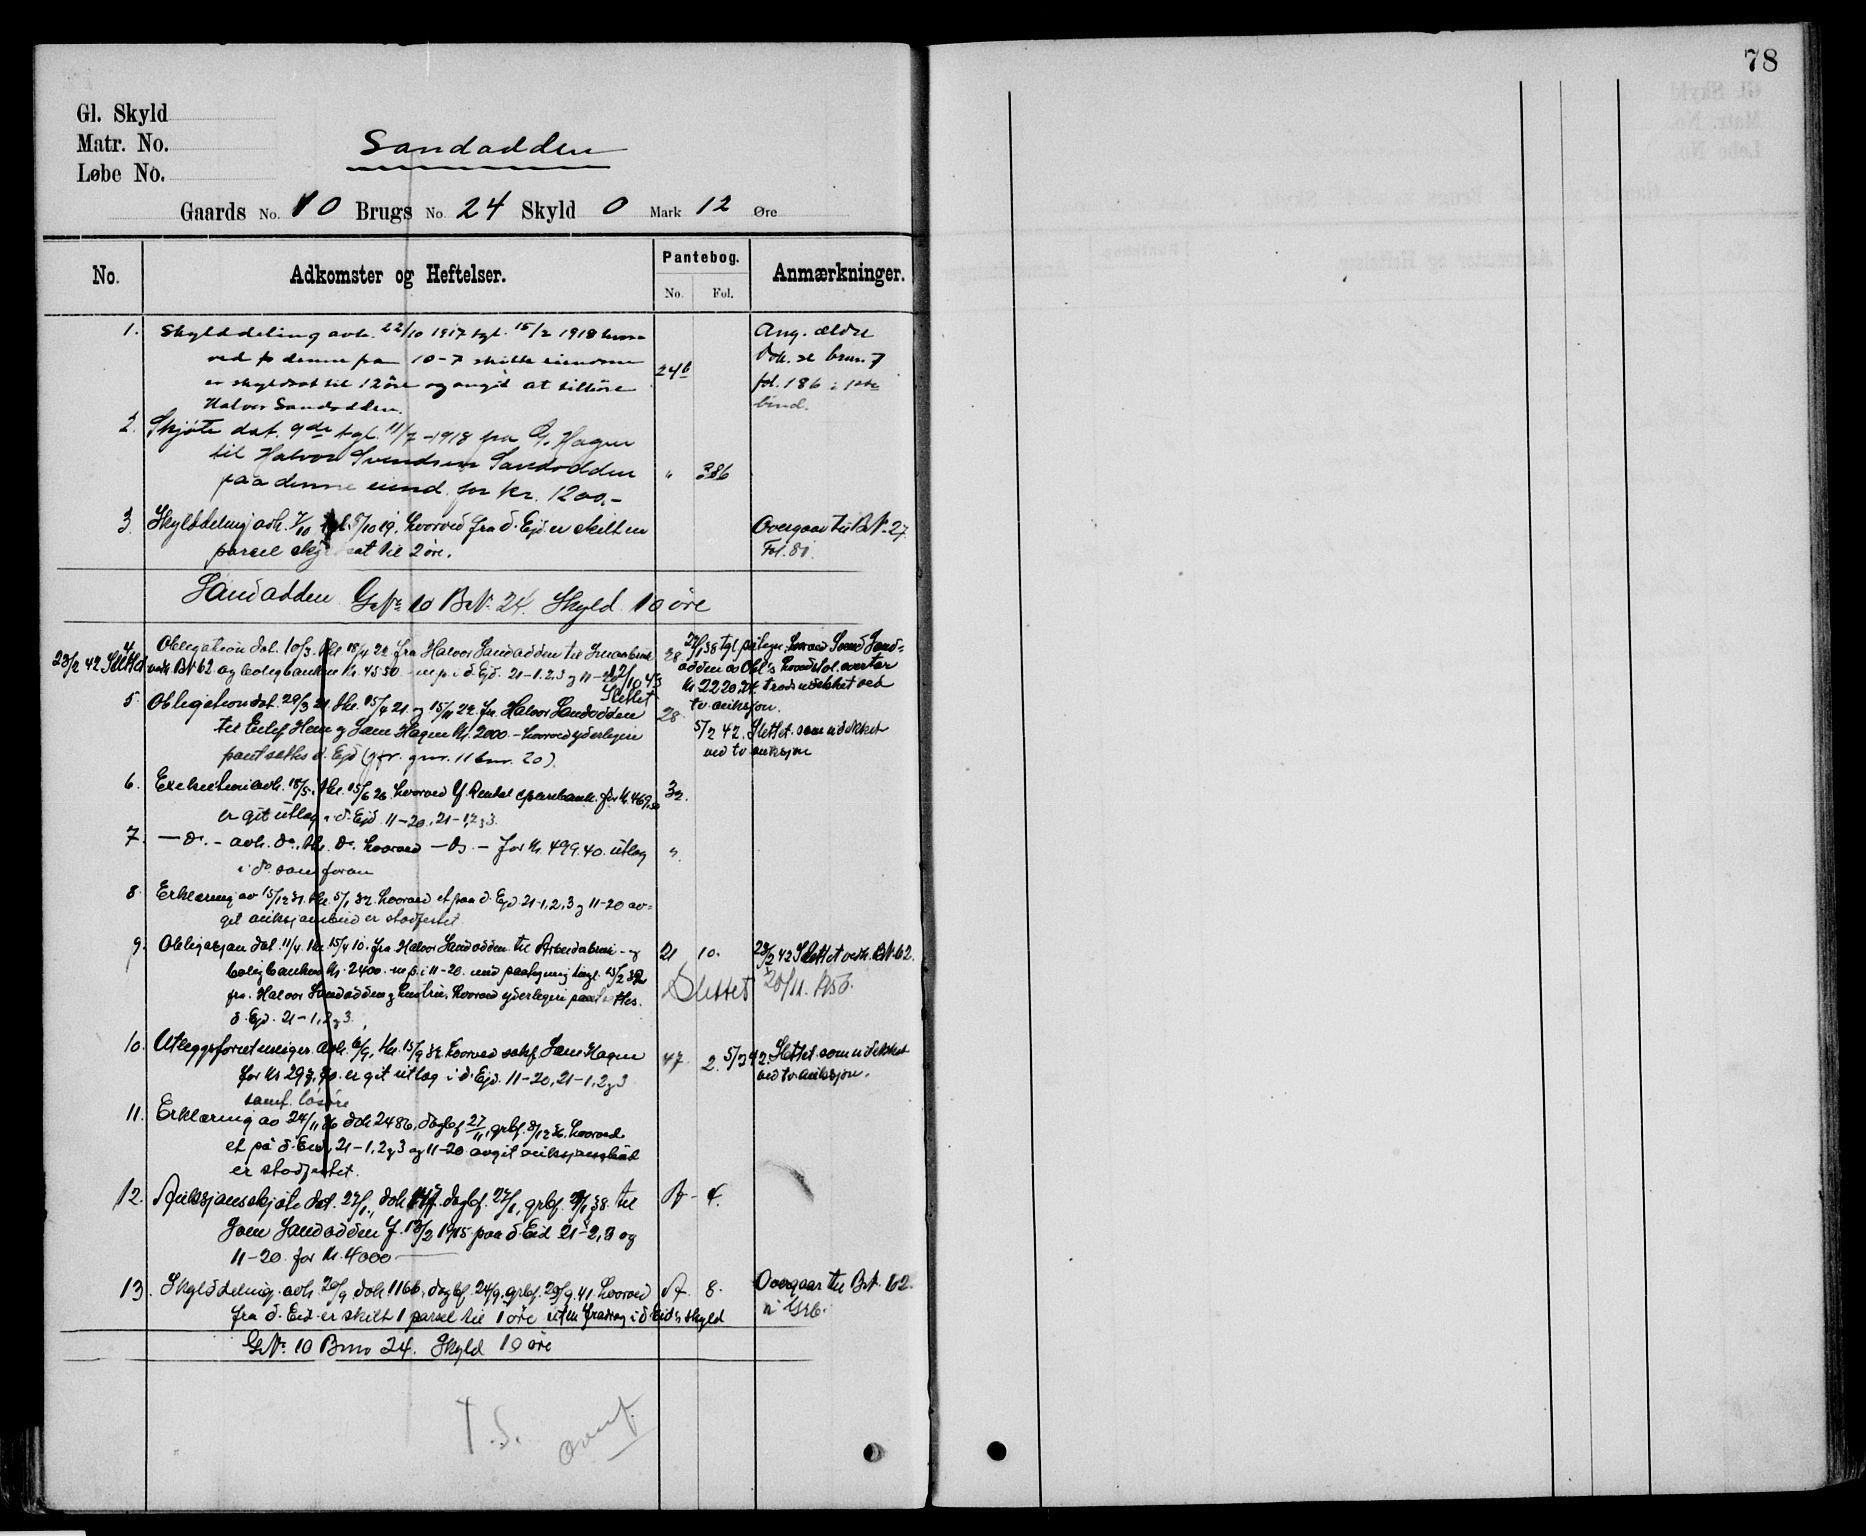 78
Gl. Skyld
Matr. No.
Løbe No.
Sandodden
Gaards No. 10 Brugs No. 24 Skyld 0 Mark 12 Øre
No. Adkomster og Heftelser. Pantebog. No. Fol. Anmærkninger.
1. Skylddeling avh. 22/10 1917 tgl. 15/2 1918 hvor-
ved denne fra 10-7 skilte eiendom
er skyldsat til 12 øre og angit at tilhøre
Halvor Sandodden.
24b
Ang. ældre
dok. se brnr. 7
fol. 186 i 1ste
bind.
2. Skjøte dat. 9de tgl. 11/7-1918 fra G. Hagen
til Halvor Svendsen Sandodden
paa denne eiend. for kr. 1200,-
" 386
3. Skylddeling avh. 7/10 tgl. 8/10 19. hvorved fra d. Ejd er skilt en
parsel skyldsat til 2 øre.
Overgaar til B.N. 27
Fol. 81.
Sandodden G.Nr. 10 B.N. 24. Skyld 10 øre
4. Obligation dat. 10/3. tkl 18/4 22 fra Halvor Sandodden til
23/2 42 Slettet vedk. BN 62 og boligbanken kr. 4550 - m.p. i d. Ejd. 21-1,2,3 og 11-20
2/10 43
Slettet
28
27/1 38 tgl påtegn. hvorved Svend Sand-
odden as Obl's hovedstol. overtar
kr 2220.24. trods udekket ved
tv. auksjon.
5. Obligation dat. 29/3 21. tkl. 15/4 21. og 15/11 22. fra Halvor Sandodden
til Eilef Hem og Jens Hagen kr. 2000 - hvorved yderligere
pantsettes d. Ejd (jfr. gnr. 11 bnr. 20).
28
5/2 42. Slettet som udekket
ved tv auksjon
6. Exekution avh. 18/5. tkl. 15/6 26. hvorved Y. Rendal sparebank. for kr. 469,50
er git utlæg i d. Ejd. 11-20, 21-1,2,3.
32.
7. — do. - avh. do., tkl. do. hvorved — do - for kr. 499.40. utlæg
i do. som foran
"
8. Erklæring av 15/12 31. tkl. 5/1 32. hvorved et paa d. Ejd. 21-1,2,3 og 11-20 av-
git auksjonsbud er stadfestet
9. Obligasjon dat. 11/4. tkl 15/4 10. fra Halvor Sandodden til Arbeiderbruk - og
boligbanken kr. 2400. m.p. i 11-20. med paategning tingl. 15/2 32
fra Halvor Sandodden og hustru, hvorved yderligere pantsettes
d. Ejd. 21-1,2,3.
21 10.
23/2 42 Slettet vedk. BN 62.
Slettet 20/11. 1956.
10. Utleggsforretninger avh. 6/9. tkl. 15/9 32 hvorved sakf. Jens Hagen
for kr 297,70. er git utlæg i d. Ejd. 11-20, 21-1,2,3
samt løsøre
47 2. 5/2 42. Slettet som udekket
ved tv. auksjon.
11. Erklæring av 24/11 36 dok 2486, dagbf 27/11, grbf. 8/12 36. hvorved
et på d. Eid., 21-1,2,3 og 11-20 avgit auksjonsbud
er stadfestet.
12. Auksjonsskjøte dat. 27/1., dok 147. dagbf. 27/1, grbf. 31/1 38. til
Sven Sandodden f. 13/2 1915 paa d. Eid 21-2,3 og
11-20. for kr. 4000
A - 4.
13. Skylddeling avh. 20/9 dok 1166, dagbf. 24/9. grbf. 29/9. 41. hvorved
fra d. Eid er skilt 1 parsel til 1 øre uten fradrag i d. Eid's skyld
A. 8.
Overgaar til B.N. 62.
i Grb.
G.Nr. 10 Brno 24. Skyld 10 øre
T.S.
overf.